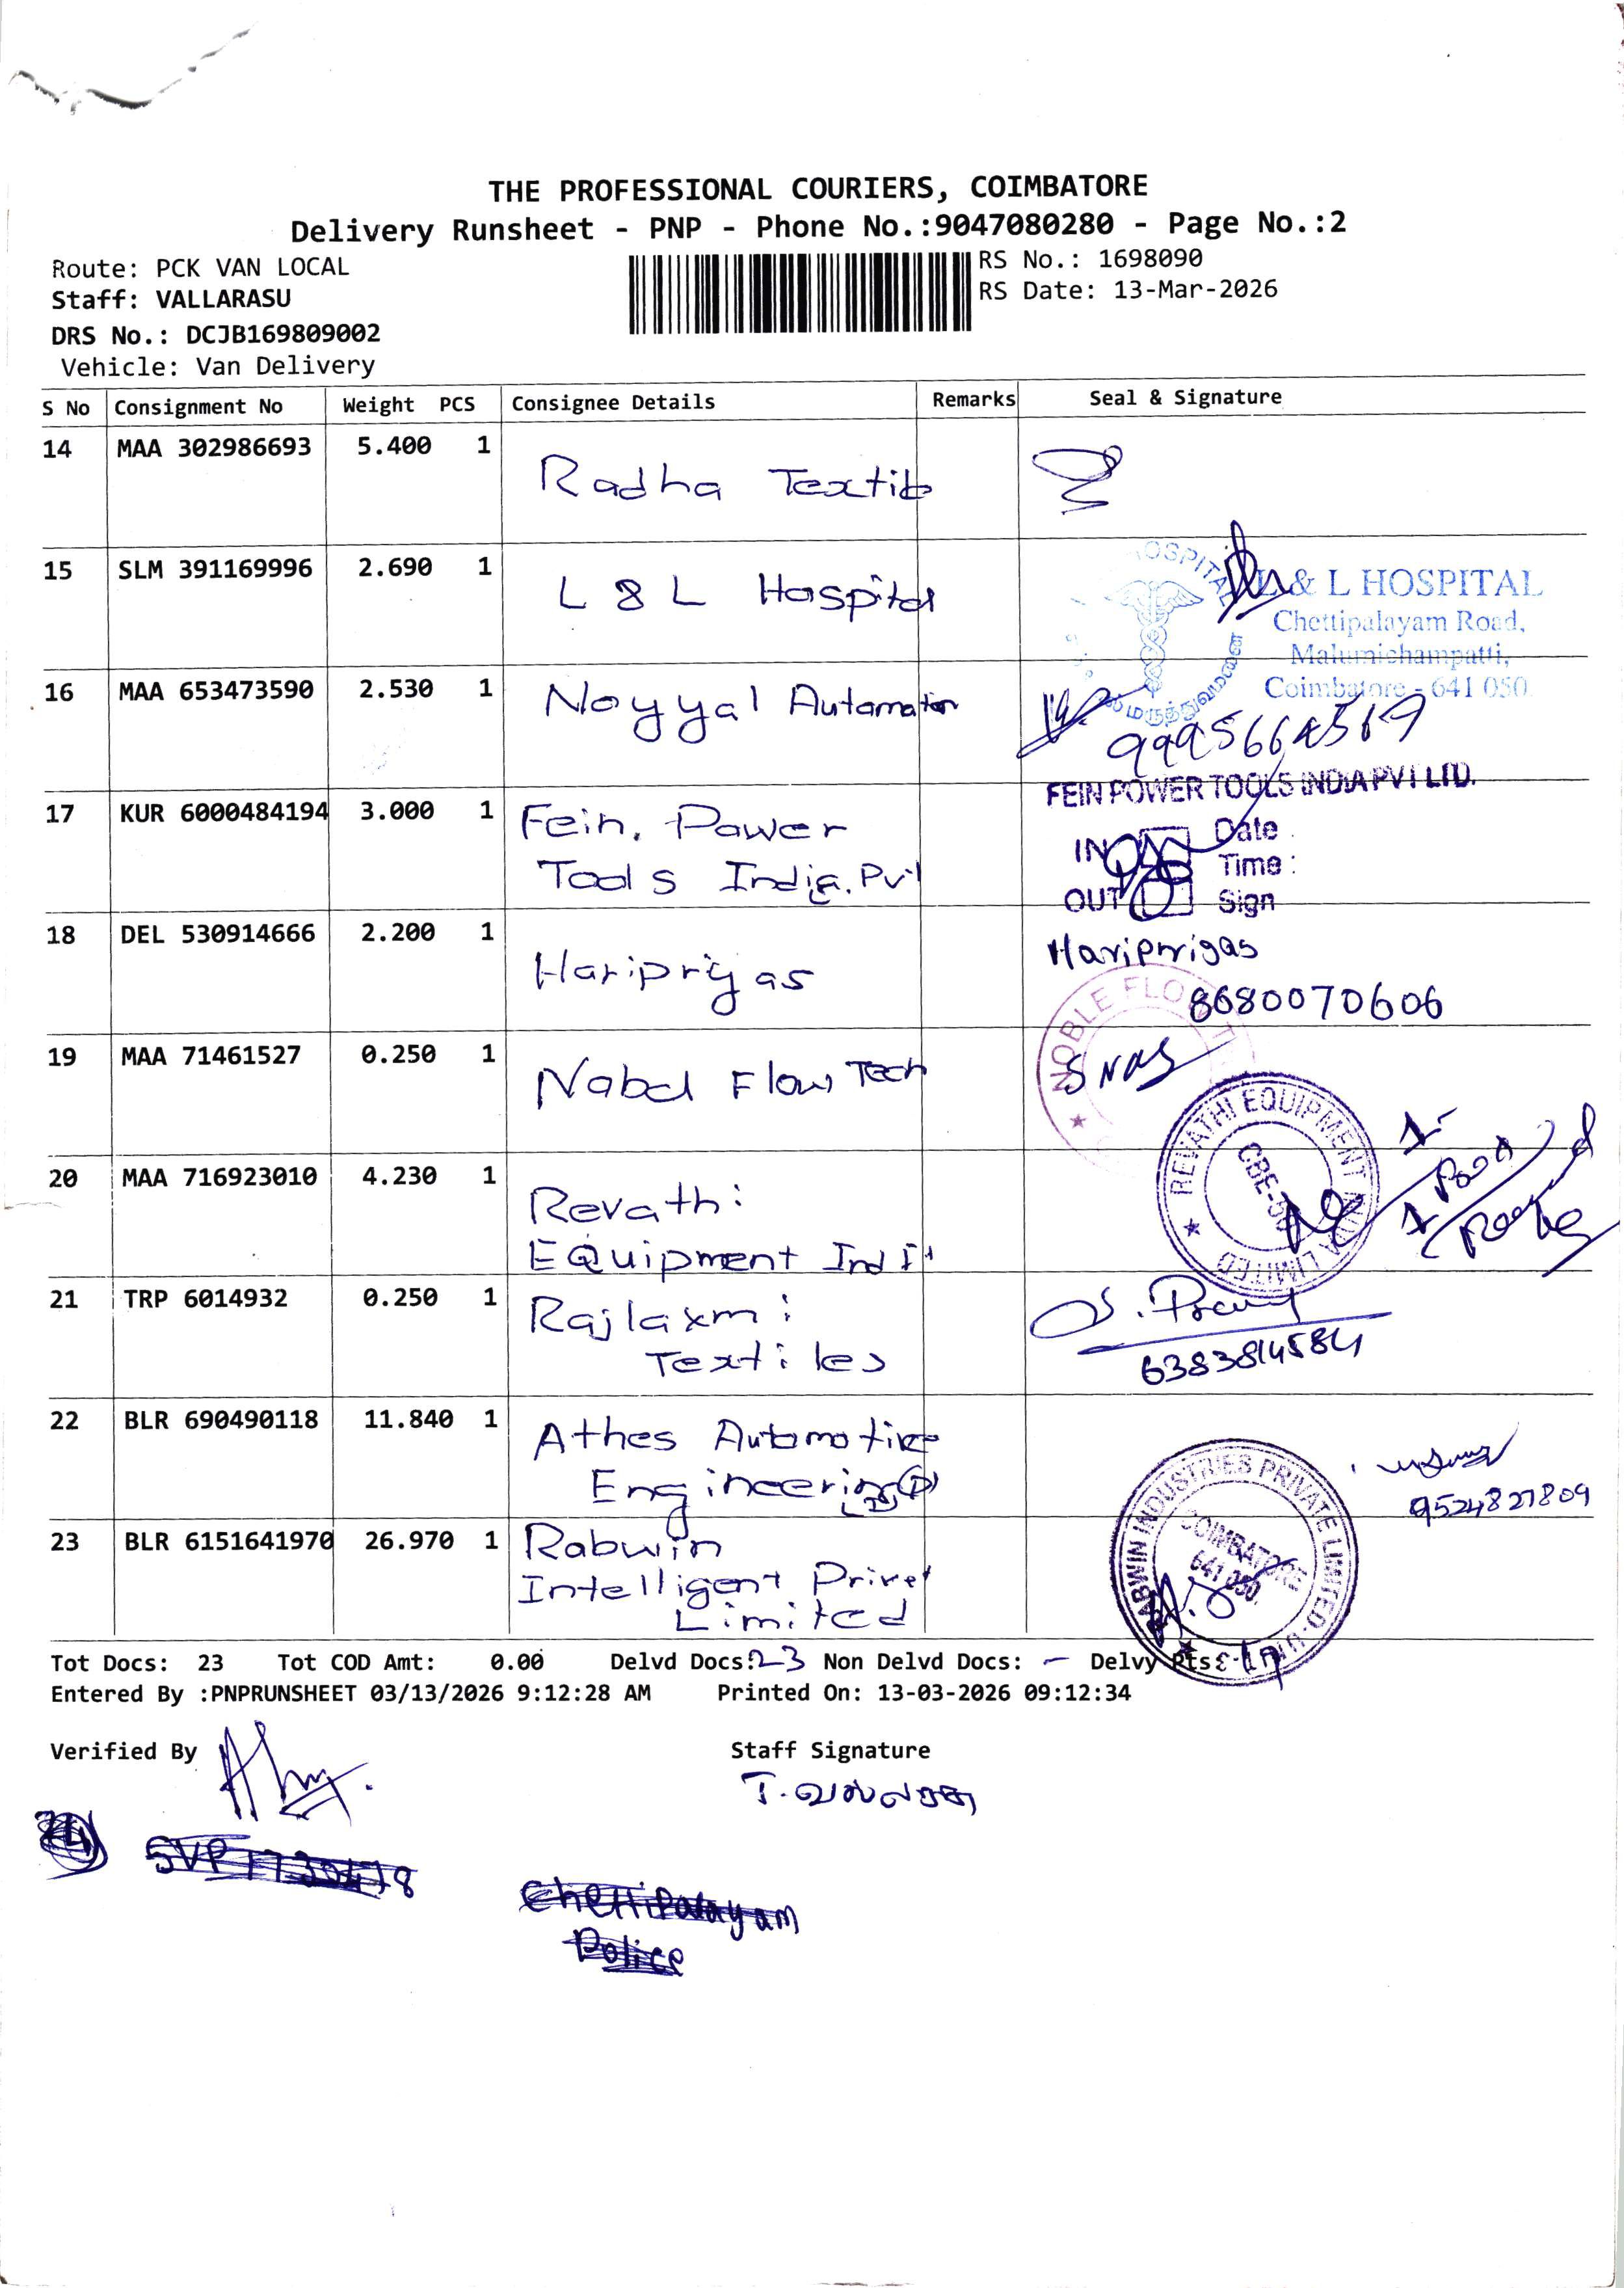 THE PROFESSIONAL COURIERS, COIMBATORE
Delivery Runsheet - PNP - Phone No.:9047080280 - Page No.:2
Route: PCK VAN LOCAL
RS No.: 1698090
Staff: VALLARASU
RS Date: 13-Mar-2026
DRS No.: DCJB169809002
Vehicle: Van Delivery
S No Consignment No Weight PCS Consignee Details Remarks Seal & Signature
14 MAA 302986693 5.400 1 Radha Textile
15 SLM 391169996 2.690 1 L & L Hospital
L & L HOSPITAL
Chettipalayam Road,
Malumichampatti,
Coimbatore - 641 050
16 MAA 653473590 2.530 1 Noyyal Automation
9995664569
FEIN POWER TOOLS INDIA PVT LTD.
17 KUR 6000484194 3.000 1 Fein. Power
Tools India. Pvt
IN Date
Time :
OUT Sign
18 DEL 530914666 2.200 1 Haripriyas
Haripriyas
8680070606
NOBLE FLO
19 MAA 71461527 0.250 1 Nobel Flow Tech
REVATHI EQUIPMENT INDIA LIMITED
CBE-50
20 MAA 716923010 4.230 1 Revathi
Equipment Ind
21 TRP 6014932 0.250 1 Rajlaxmi
Textiles
6383814584
22 BLR 690490118 11.840 1 Athes Automotive
Engineering (P)
9524827809
23 BLR 6151641970 26.970 1 Rabwin
Intelligent Privet
Limited
RABWIN INDUSTRIES PRIVATE LIMITED-UNIT-3
COIMBATORE
641 050.
Tot Docs: 23 Tot COD Amt: 0.00 Delvd Docs: 23 Non Delvd Docs: - Delvy Pts:
Entered By :PNPRUNSHEET 03/13/2026 9:12:28 AM Printed On: 13-03-2026 09:12:34
Verified By
Staff Signature
T. வல்லரசு
Chettipalayam
Police